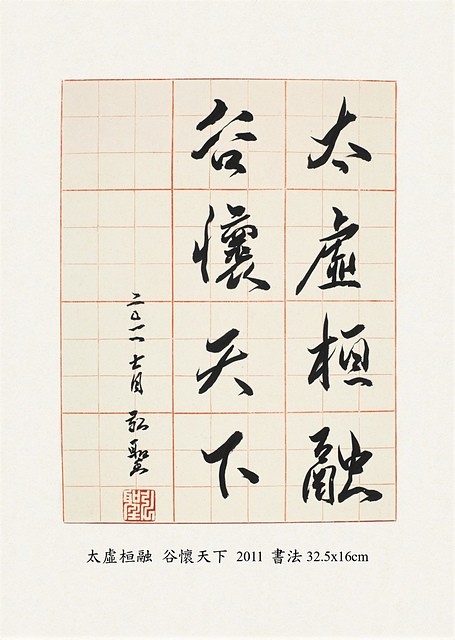 太虛桓融
谷懷天下
二〇一一七月 弘聖
太虛桓融 谷懷天下 2011 書法 32.5x16cm